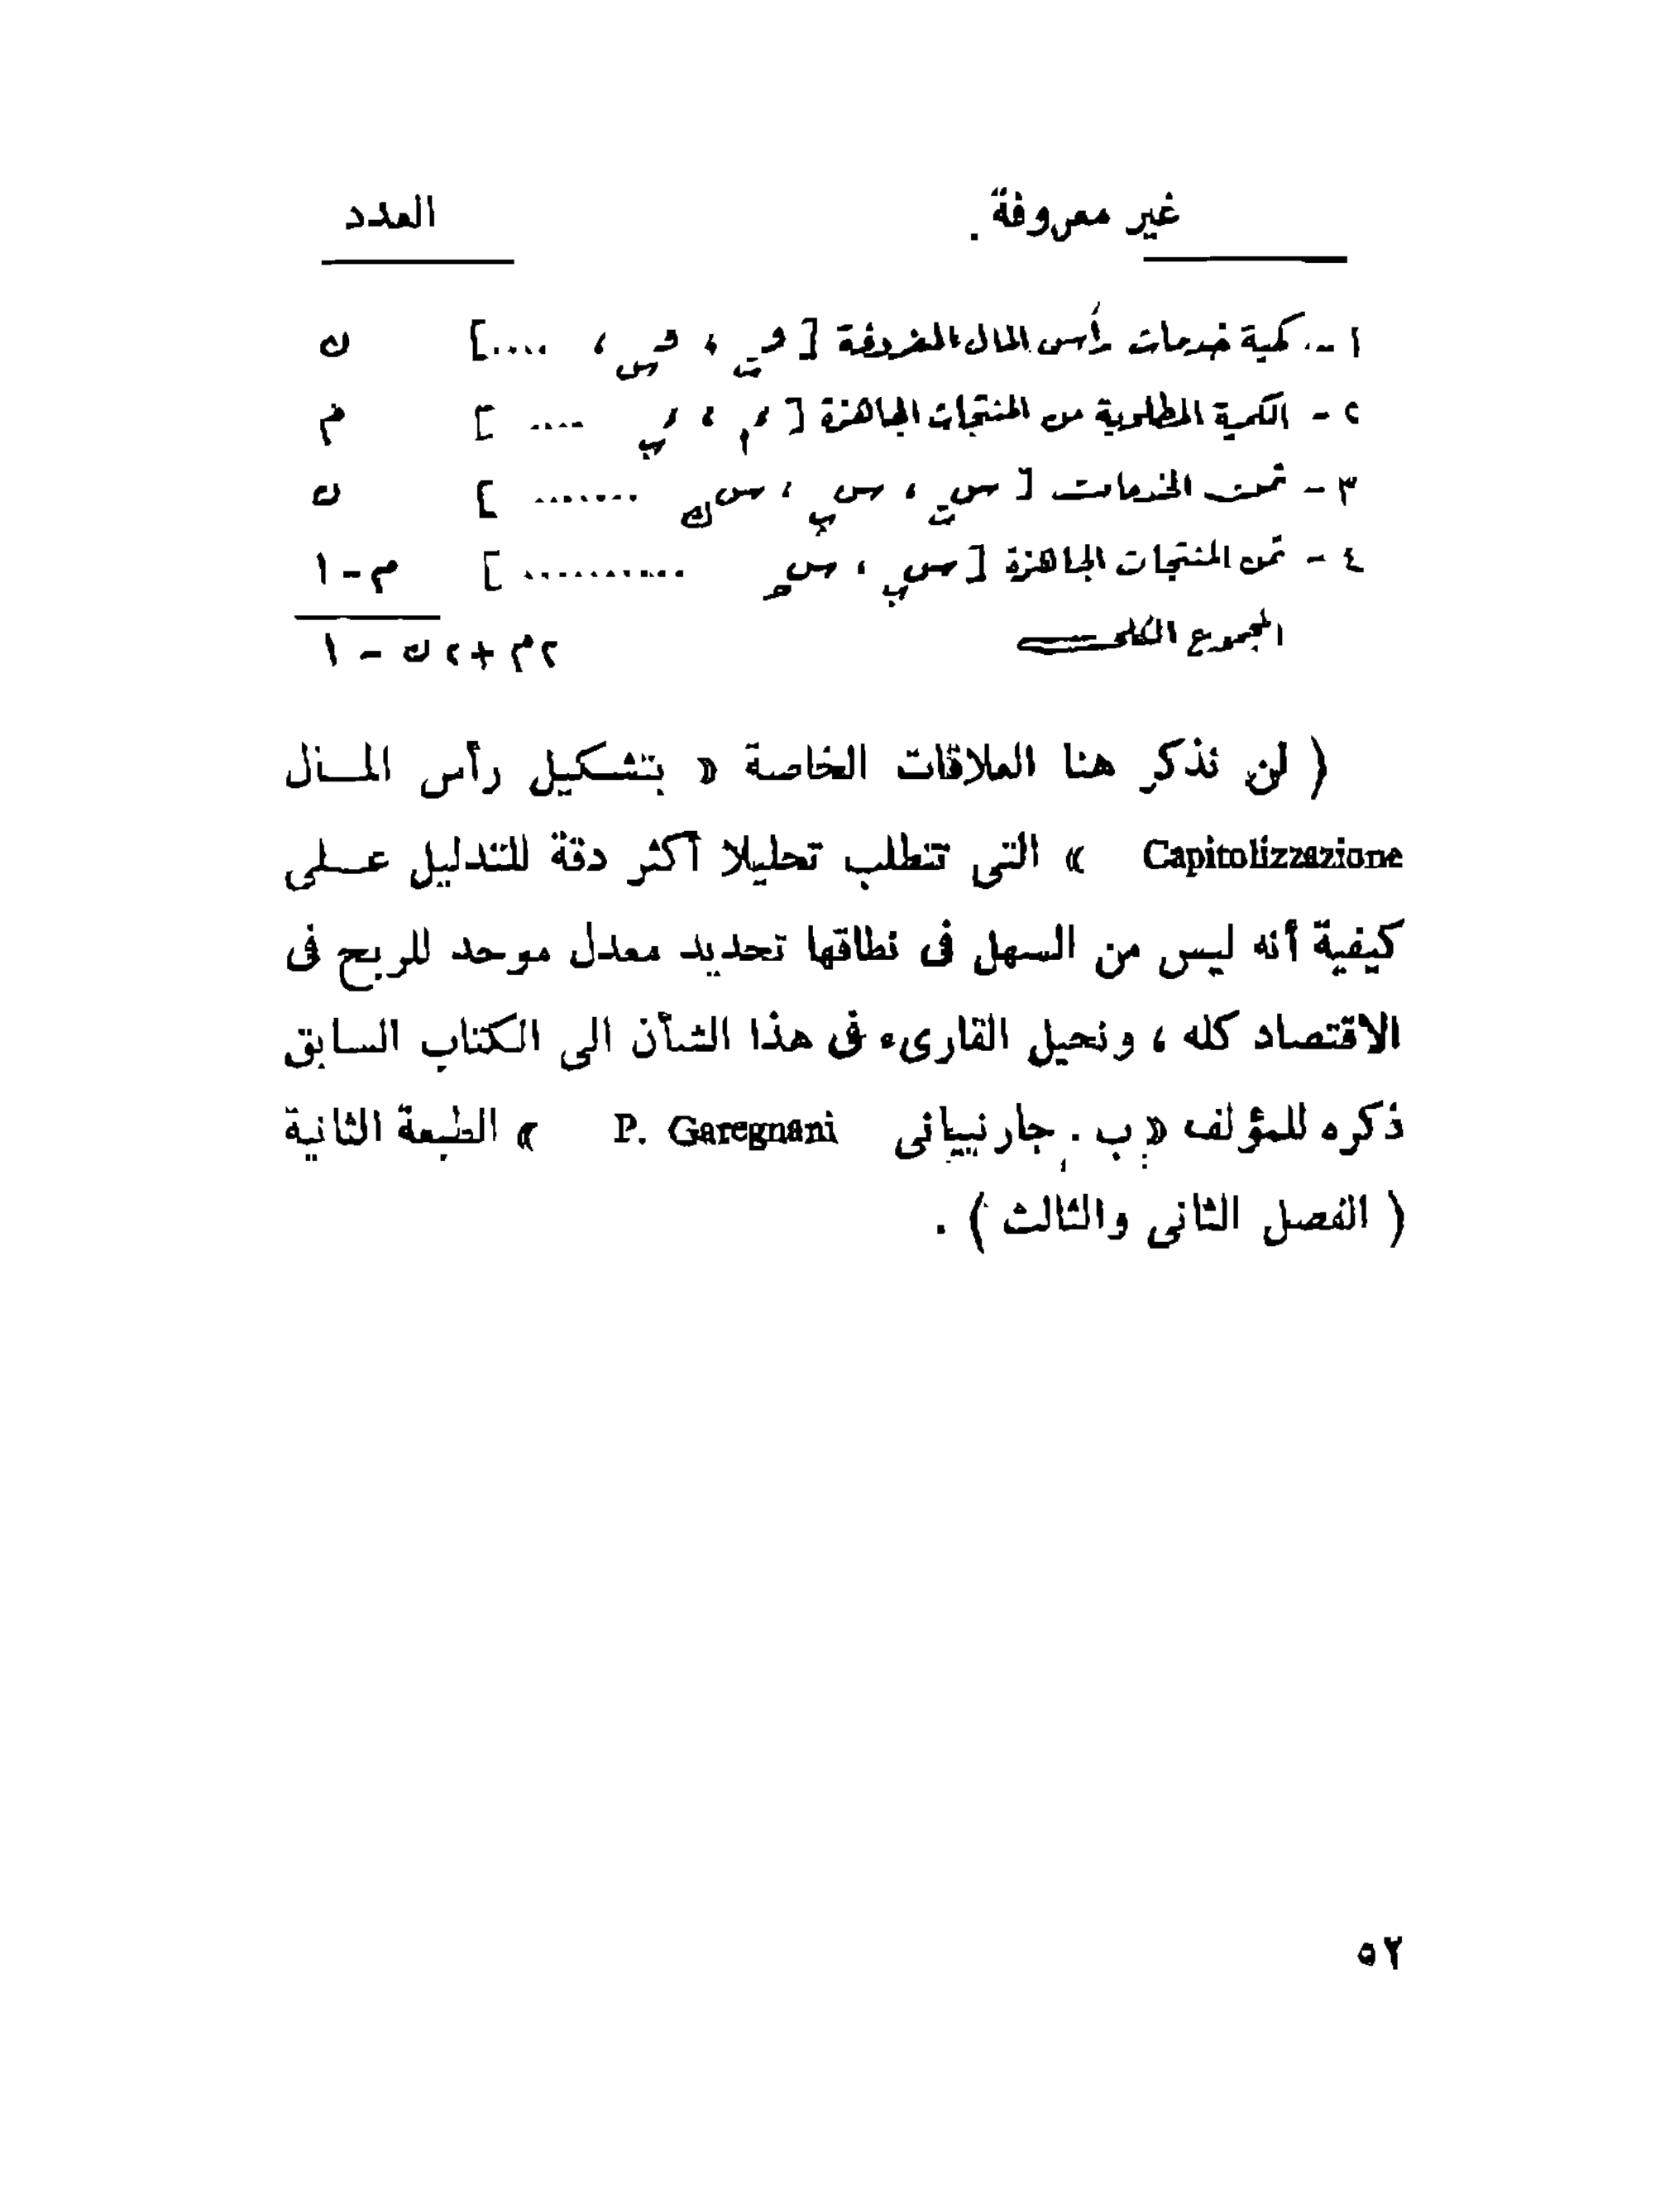 غير معروفة . العدد
١ - كمية خدمات رأس المال المعروفة [ و ، و ، .... ] ن
٢ - الكمية المطلوبة من المنتجات الجاهزة [ .... ] م
٣ - ثمن الخدمات [ س ، س ، س ....... ] ن
٤ - ثمن المنتجات الجاهزة [ س ، س .......... ] م - ١
المجموع الكلى ٢م + ٢ن - ١
( لن نذكر هنا العلاقات الخاصة « بتشكيل رأس المال
Capitolizzazione » التى تتطلب تحليلا أكثر دقة للتدليل على
كيفية أنه ليس من السهل فى نطاقها تحديد معدل موحد للربح فى
الاقتصاد كله ، ونحيل القارىء فى هذا الشأن الى الكتاب السابق
ذكره للمؤلف « ب . جارنييانى P. Garegnani » الطبعة الثانية
( الفصل الثانى والثالث ) .
٥٢